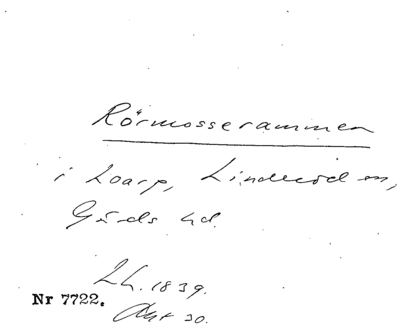 Rörmosserammen
i Loarp, Linderöd sn,
Gärds hd.
LL. 1839.
Akt 30.
Nr 7722.